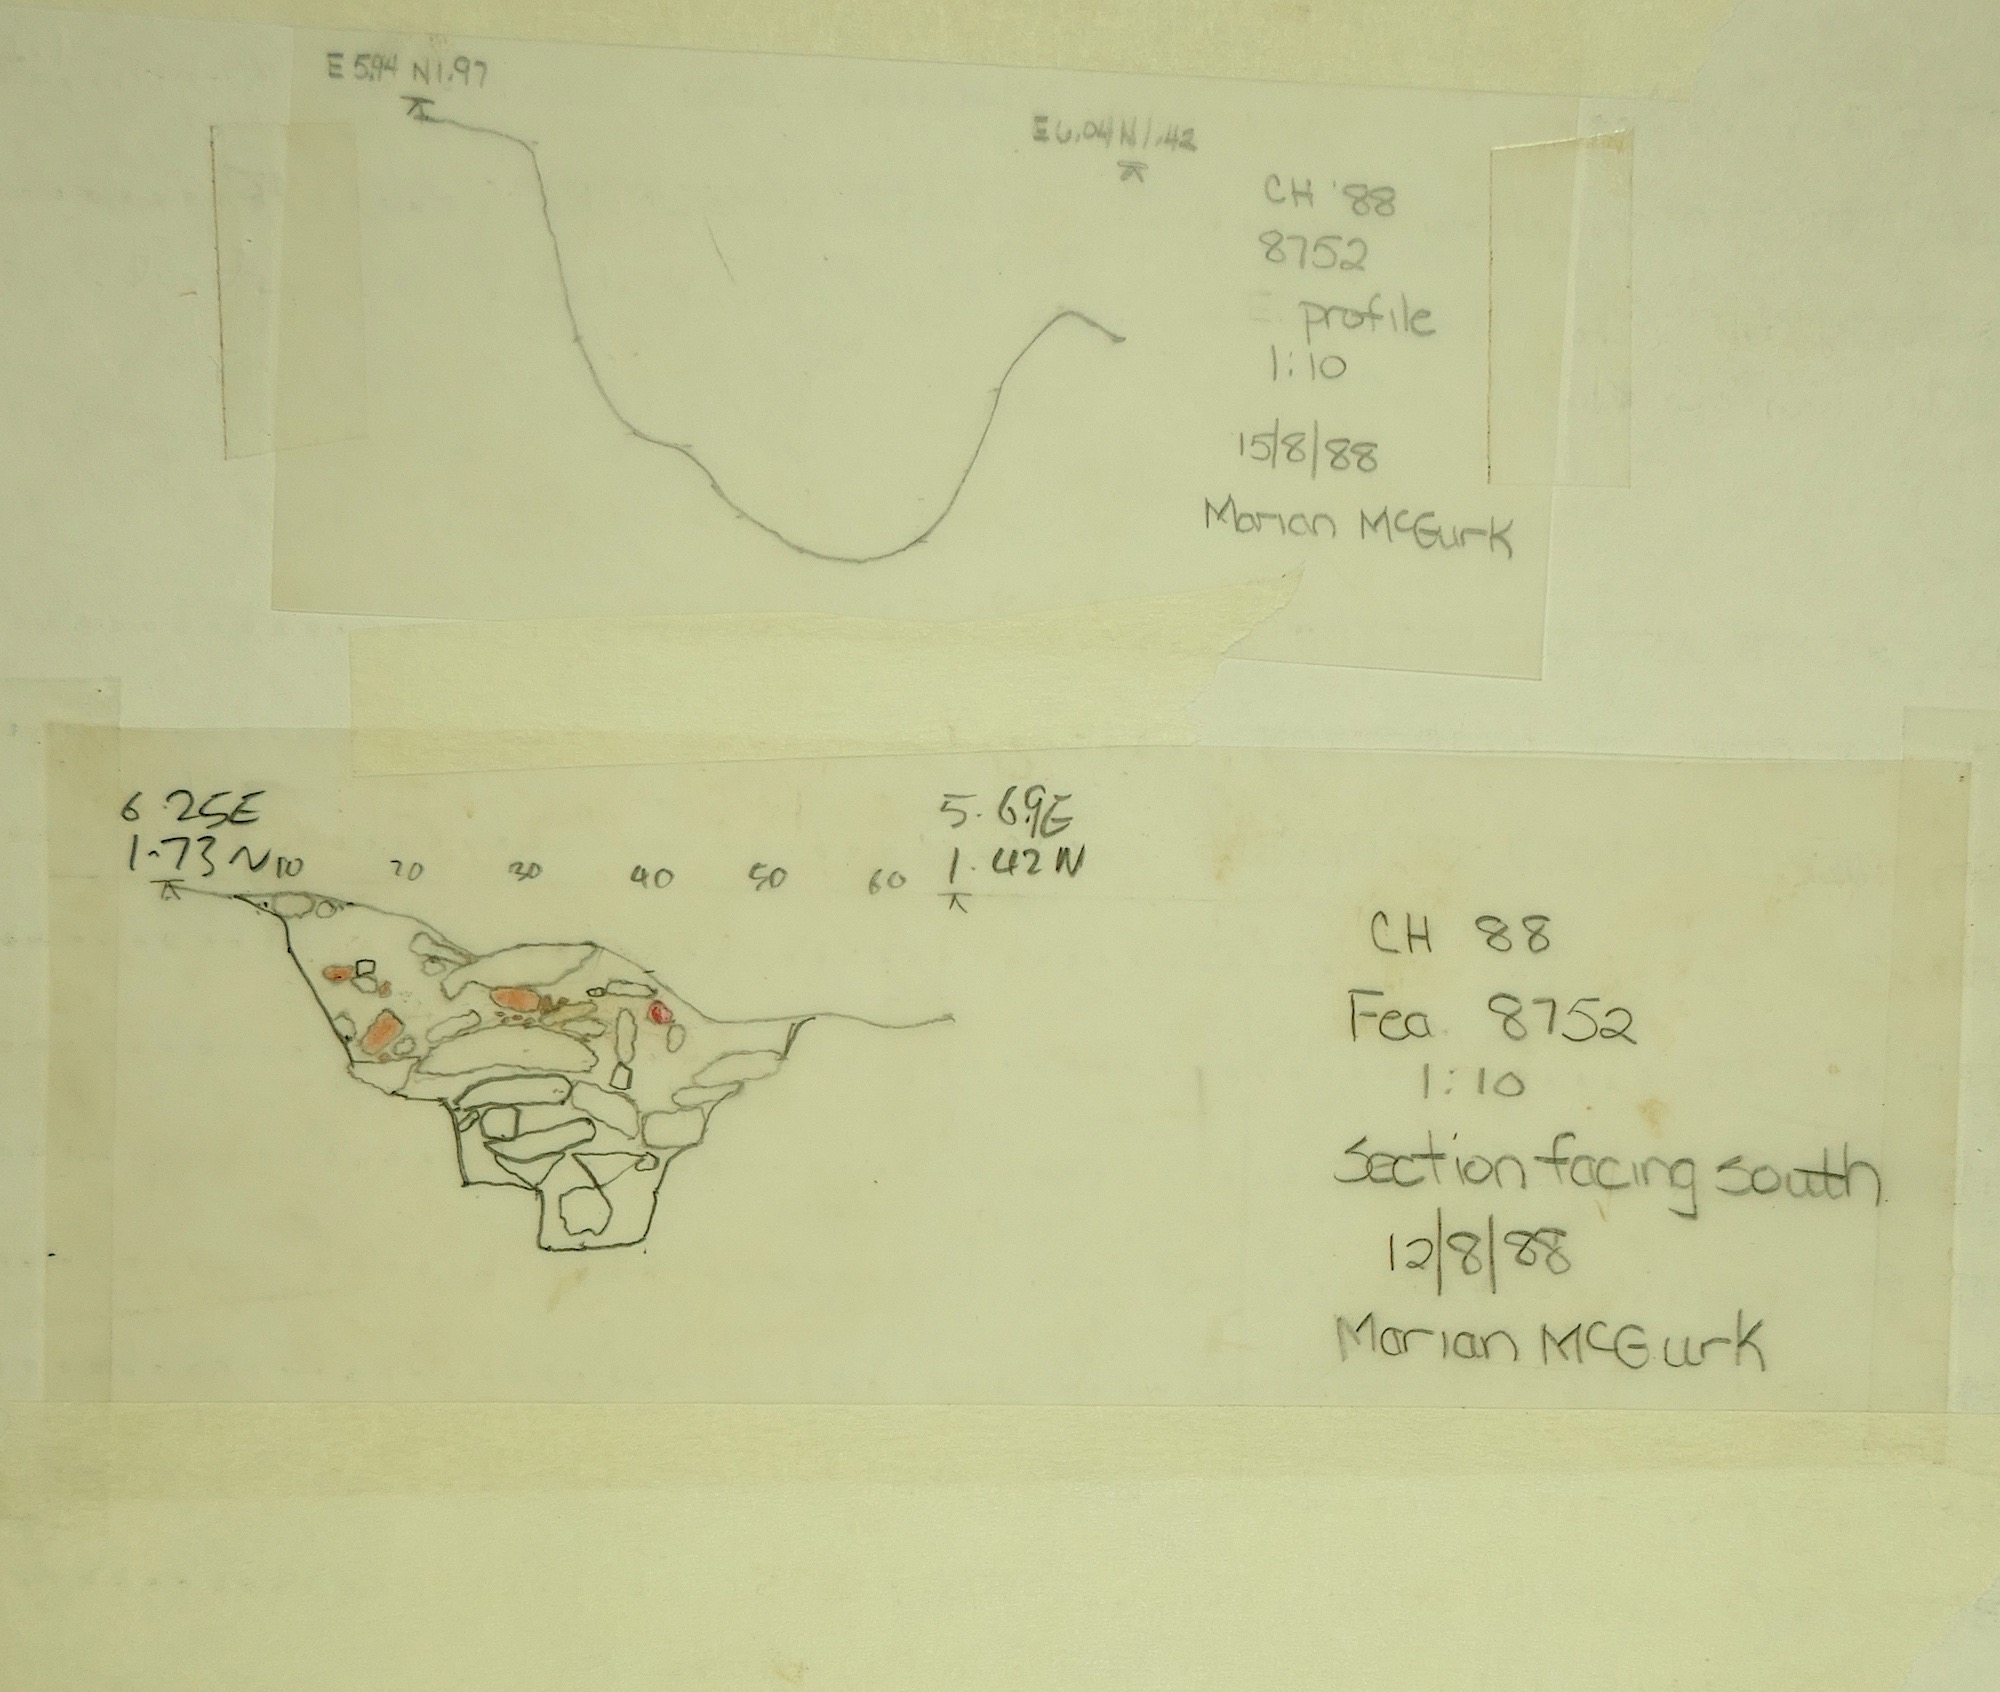 E 5.94 N1.97
E 6.04 N 1.42
CH '88
8752
E profile
1:10
15/8/88
Marian McGurk
6.25E
1.73 N
5.69E
1.42 N
10 20 30 40 50 60
CH 88
Fea. 8752
1:10
Section facing south
12/8/88
Marian McGurk